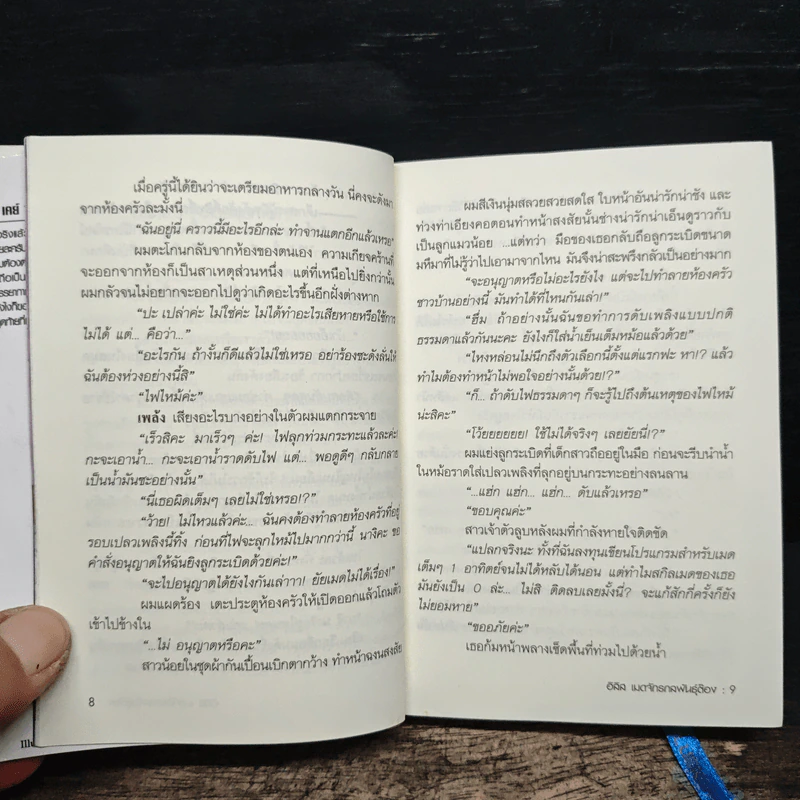 เคย์
เมื่อครู่นี้ได้ยินว่าจะเตรียมอาหารกลางวัน นี่คงจะดังมา
จากห้องครัวละมั้งนี่
“ฉันอยู่นี่ คราวนี้มีอะไรอีกล่ะ ทำจานแตกอีกแล้วเหรอ”
ผมตะโกนกลับจากห้องของตนเอง ความเกียจคร้านที่
จะออกจากห้องก็เป็นสาเหตุส่วนหนึ่ง แต่ที่เหนือไปยิ่งกว่านั้น
ผมกลัวจนไม่อยากจะออกไปดูว่าเกิดอะไรขึ้นอีกฝั่งต่างหาก
“ปะ เปล่าค่ะ ไม่ใช่ค่ะ ไม่ได้ทำอะไรเสียหายหรือใช้การ
ไม่ได้ แต่... คือว่า...”
“อะไรกัน ถ้างั้นก็ดีแล้วไม่ใช่เหรอ อย่าร้องซะดังลั่นให้
ฉันต้องห่วงอย่างนี้สิ”
“ไฟไหม้ค่ะ”
เพล้ง เสียงอะไรบางอย่างในตัวผมแตกกระจาย
“เร็วสิคะ มาเร็วๆ ค่ะ! ไฟลุกท่วมกระทะแล้วล่ะค่ะ!
กะจะเอาน้ำ... กะจะเอาน้ำราดดับไฟ แต่... พอดูดีๆ กลับกลาย
เป็นน้ำมันซะอย่างนั้น”
“นี่เธอผิดเต็มๆ เลยไม่ใช่เหรอ!?”
“ว้าย! ไม่ไหวแล้วค่ะ... ฉันคงต้องทำลายห้องครัวที่อยู่
รอบเปลวเพลิงนี้ทิ้ง ก่อนที่ไฟจะลุกไหม้ไปมากกว่านี้ นางิคะ ขอ
คำสั่งอนุญาตให้ฉันยิงลูกระเบิดด้วยค่ะ!”
“จะไปอนุญาตได้ยังไงกันเล่าาา! ยัยเมดไม่ได้เรื่อง!”
ผมแผดร้อง เตะประตูห้องครัวให้เปิดออกแล้วโถมตัว
เข้าไปข้างใน
“...ไม่ อนุญาตหรือคะ”
สาวน้อยในชุดผ้ากันเปื้อนเบิกตากว้าง ทำหน้าฉงนสงสัย
8
ผมสีเงินนุ่มสลวยสวยสดใส ใบหน้าอันน่ารักน่าชัง และ
ท่วงท่าเอียงคอตอนทำหน้าสงสัยนั้นช่างน่ารักน่าเอ็นดูราวกับ
เป็นลูกแมวน้อย ...แต่ทว่า มือของเธอกลับถือลูกระเบิดขนาด
มหึมาที่ไม่รู้ว่าไปเอามาจากไหน มันจึงน่าสะพรึงกลัวเป็นอย่างมาก
“จะอนุญาตหรือไม่อะไรยังไง แต่จะไปทำลายห้องครัว
ชาวบ้านอย่างนี้ มันทำได้ที่ไหนกันเล่า!”
“ฮึ่ม ถ้าอย่างนั้นฉันขอทำการดับเพลิงแบบปกติ
ธรรมดาแล้วกันนะคะ ยังไงก็ใส่น้ำเย็นเต็มหม้อแล้วด้วย”
“ไหงหล่อนไม่นึกถึงตัวเลือกนี้ตั้งแต่แรกฟะ หา!? แล้ว
ทำไมต้องทำหน้าไม่พอใจอย่างนั้นด้วย!?”
“ก็... ถ้าดับไฟธรรมดาๆ ก็จะรู้ไปถึงต้นเหตุของไฟไหม้
น่ะสิคะ”
“โว้ยยยยยย! ใช้ไม่ได้จริงๆ เลยยัยนี่!?”
ผมแย่งลูกระเบิดที่เด็กสาวถืออยู่ในมือ ก่อนจะรีบนำน้ำ
ในหม้อราดใส่เปลวเพลิงที่ลุกอยู่บนกระทะอย่างลนลาน
“...แฮ่ก แฮ่ก... แฮ่ก... ดับแล้วเหรอ”
“ขอบคุณค่ะ”
สาวเจ้าตัวลูบหลังผมที่กำลังหายใจติดขัด
“แปลกจริงนะ ทั้งที่ฉันลงทุนเขียนโปรแกรมสำหรับเมด
เต็มๆ 1 อาทิตย์จนไม่ได้หลับได้นอน แต่ทำไมสกิลเมดของเธอ
มันยังเป็น 0 ล่ะ... ไม่สิ ติดลบเลยมั้งนี่? จะแก้สักกี่ครั้งก็ยัง
ไม่ยอมหาย”
“ขออภัยค่ะ”
เธอก้มหน้าพลางเช็ดพื้นที่ท่วมไปด้วยน้ำ
อิลิส เมดจักรกลพันธุ์ต๊อง : 9